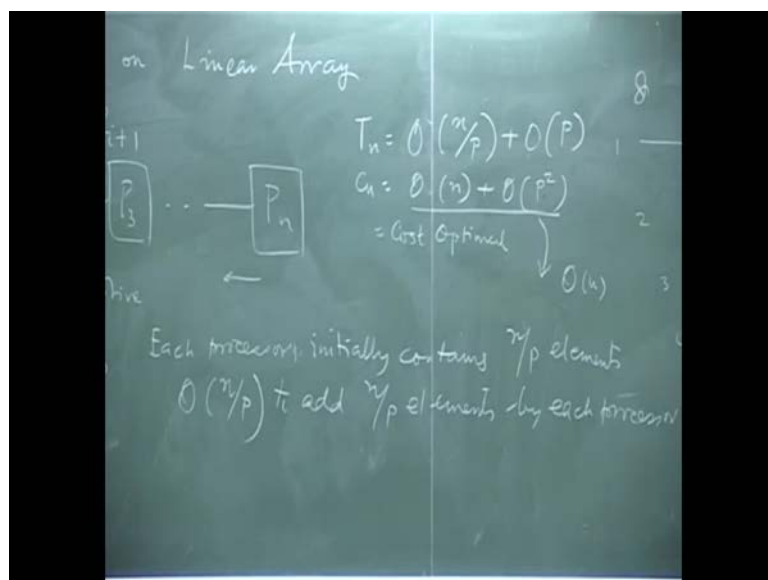 on Linear Array
8
i+1
Tn = O(n/p) + O(p)
1
P3 .. Pn
Cn = O(n) + O(p²)
2
= Cost Optimal
O(n)
3
Each processors initially contains n/p elements
O(n/p) to add n/p elements by each processor